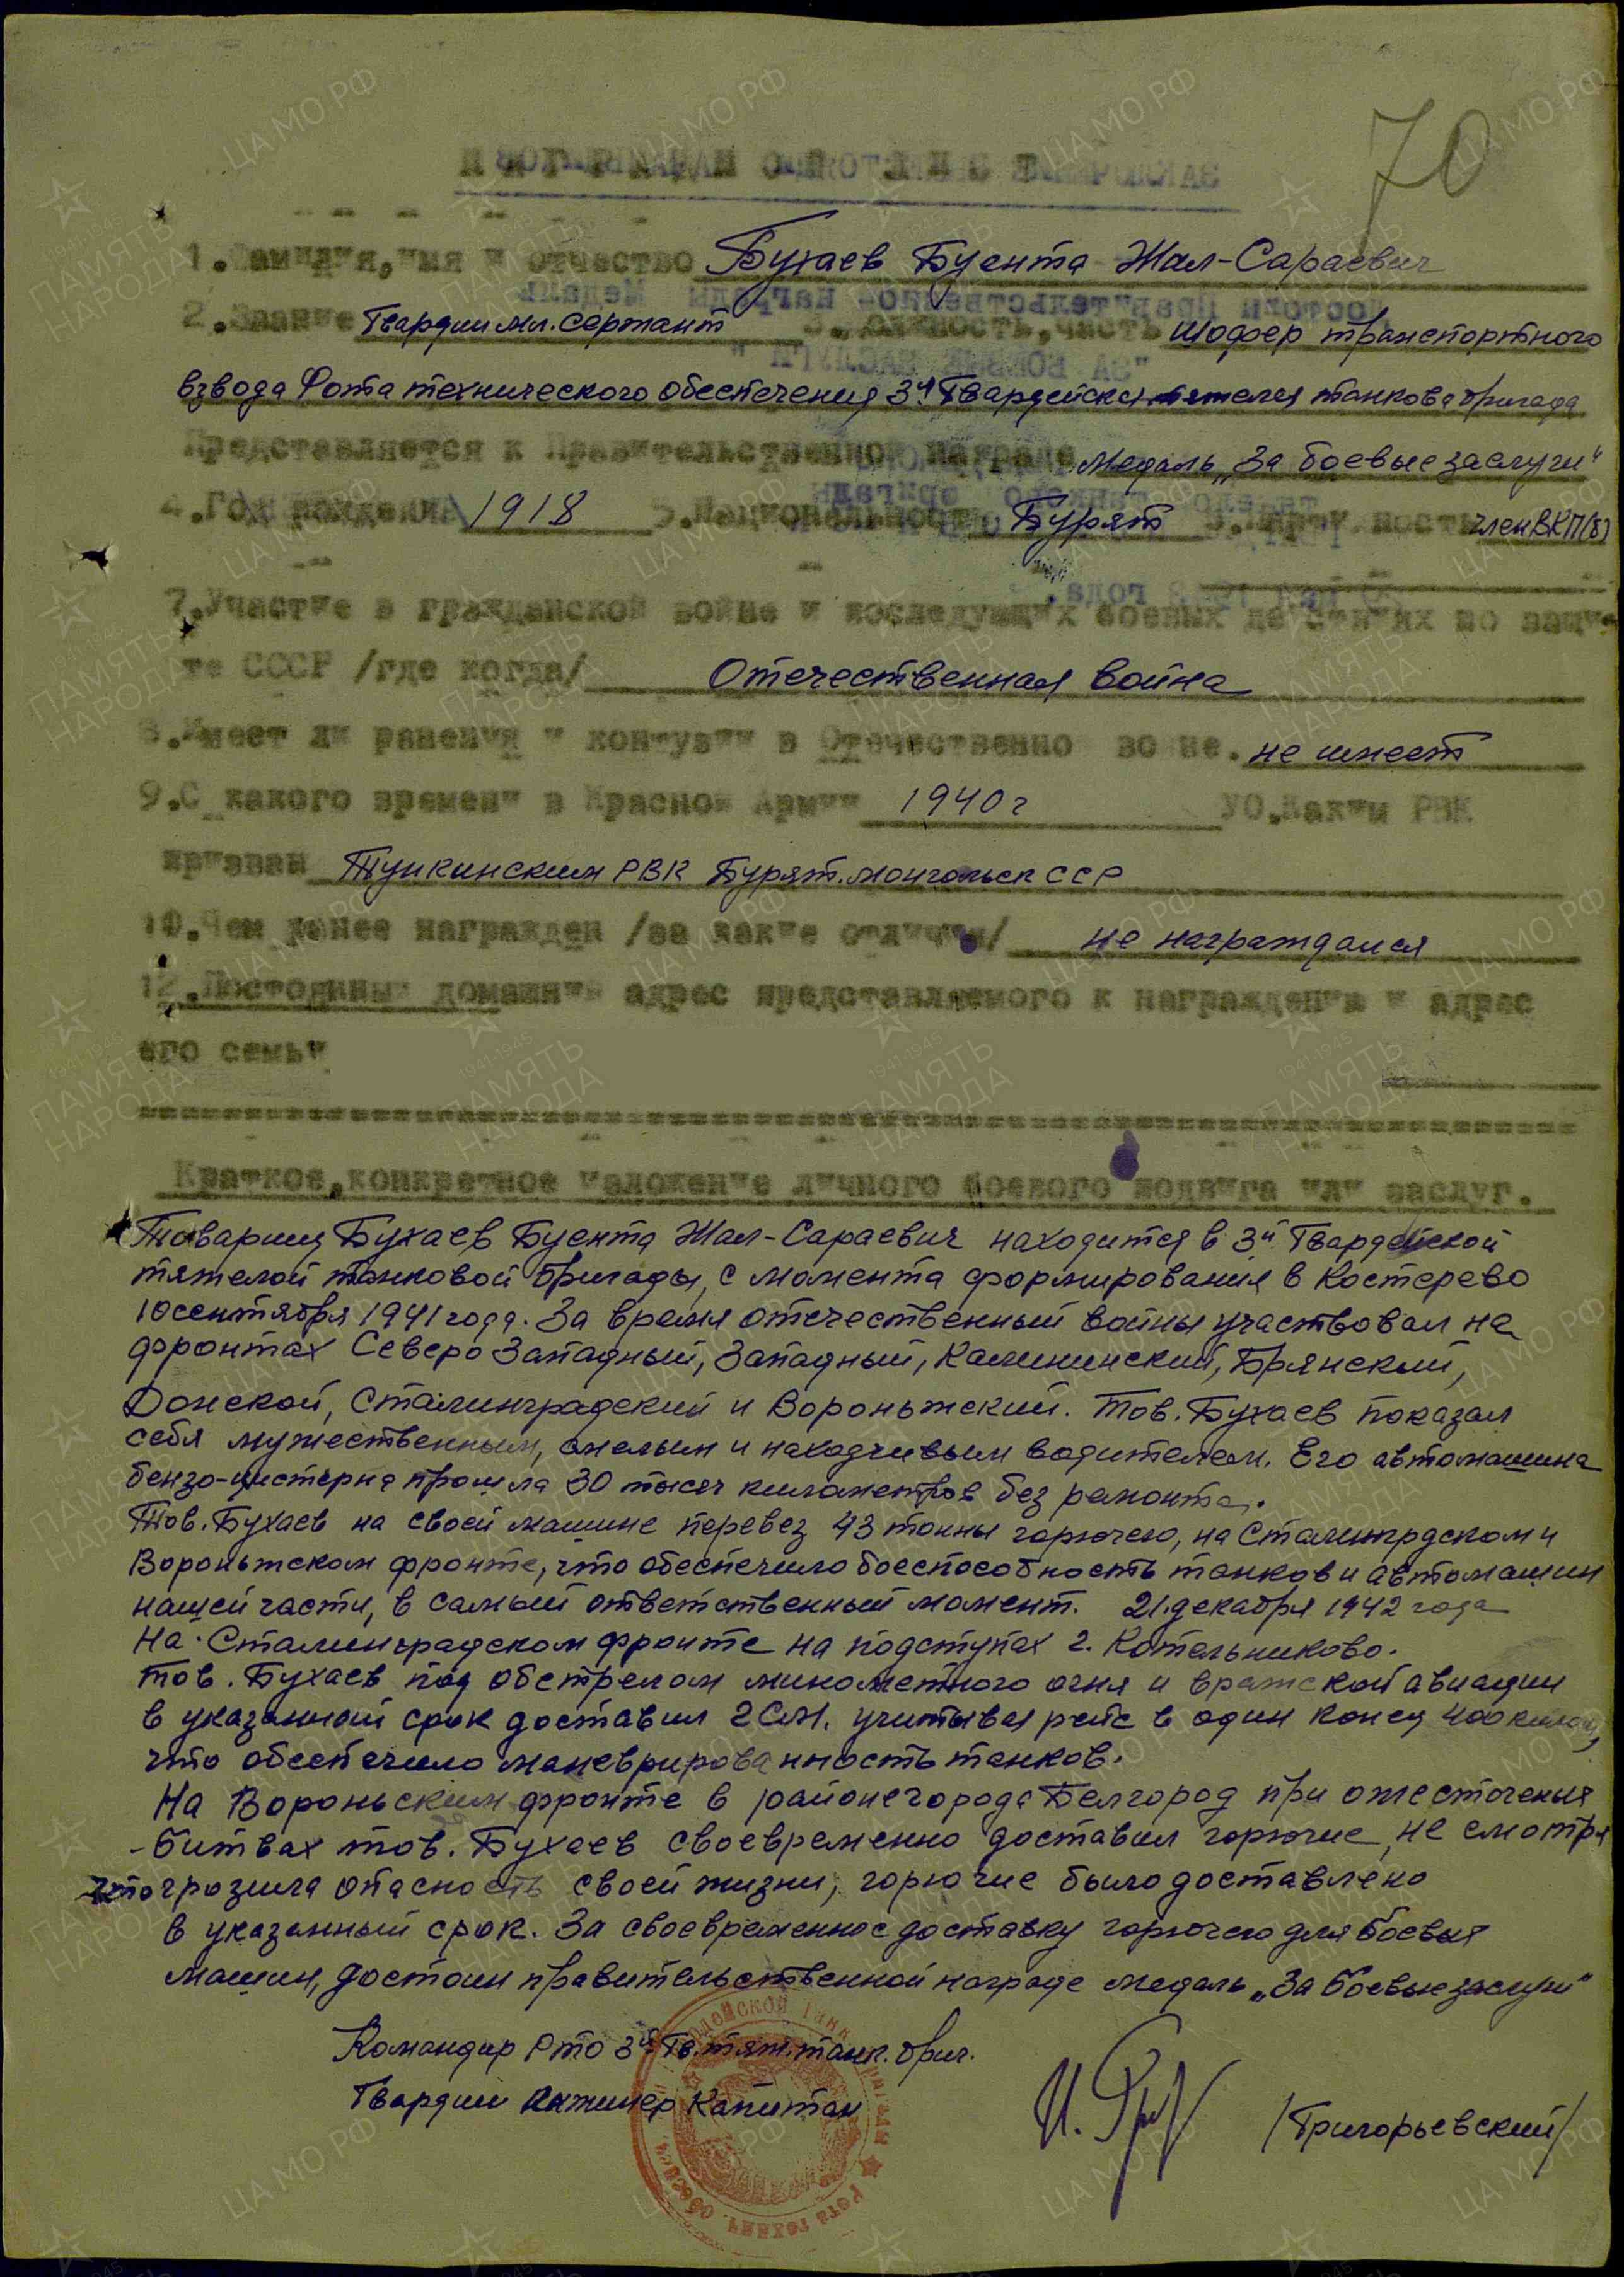 70
НАГРАДНОЙ ЛИСТ
1. Фамилия, имя и отчество Бухаев Буента Жал-Сараевич
2. Звание Гвардии мл. сержант 3. Должность, часть шофер транспортного
взвода Рота технического обеспечения 3й Гвардейская тяжелая танкова бригада
Представляется к Правительственной награде медаль „За боевые заслуги"
4. Год рождения 1918 5. Национальность Бурят 6. Партийность член ВКП(б)
7. Участие в гражданской войне и последующих боевых действиях по защи-
те СССР /где когда/ Отечественная война
8. Имеет ли ранения и контузии в Отечественной войне. не имеет
9. С какого времени в Красной Армии 1940 г УО. Каким РВК
призван Тункинским РВК Бурят. монгольск ССР
10. Чем ранее награжден /за какие отличия/ не награждался
12. Постоянный домашний адрес представляемого к награждению и адрес
его семьи
Краткое, конкретное изложение личного боевого подвига или заслуг.
Товарищ Бухаев Буента Жал-Сараевич находится в 3й Гвардейской
тяжелой танковой бригады, с момента формирования в Костерево
10 сентября 1941 года. За время отечественный войны участвовал на
фронтах Северо Западный, Западный, Калининский, Брянский,
Донской, Сталинградский и Вороньжский. Тов. Бухаев показал
себя мужественным, смелым и находчивым водителем. Его автомашина
бензо-цистерна прошла 30 тысяч километров без ремонта.
Тов. Бухаев на своей машине перевез 43 тонны горючего, на Сталингрдском и
Вороньжском фронте, что обеспечило боеспособность танков и автомашин
нашей части, в самый ответственный момент. 21 декабря 1942 года
На Сталинградском фронте на подступах г. Котельниково.
Тов. Бухаев под обстрелом минометного огня и вражской авиации
в указанный срок доставил ГСМ. учитывая рейс в один конец 400 килом,
что обеспечило маневрированность танков.
На Вороньским фронте в районе города Белгород при ожесточеных
битвах тов. Бухаев своевременно доставил горючие, не смотря
что грозила опасность своей жизни, горючие было доставлено
в указанный срок. За своевременное доставку горючего для боевых
машин, достоин правительственной награде медаль „За боевые заслуги"
Командир Рто 3й Гв. тяж. танк. бриг.
Гвардии инжинер Капитан
/Григорьевский/